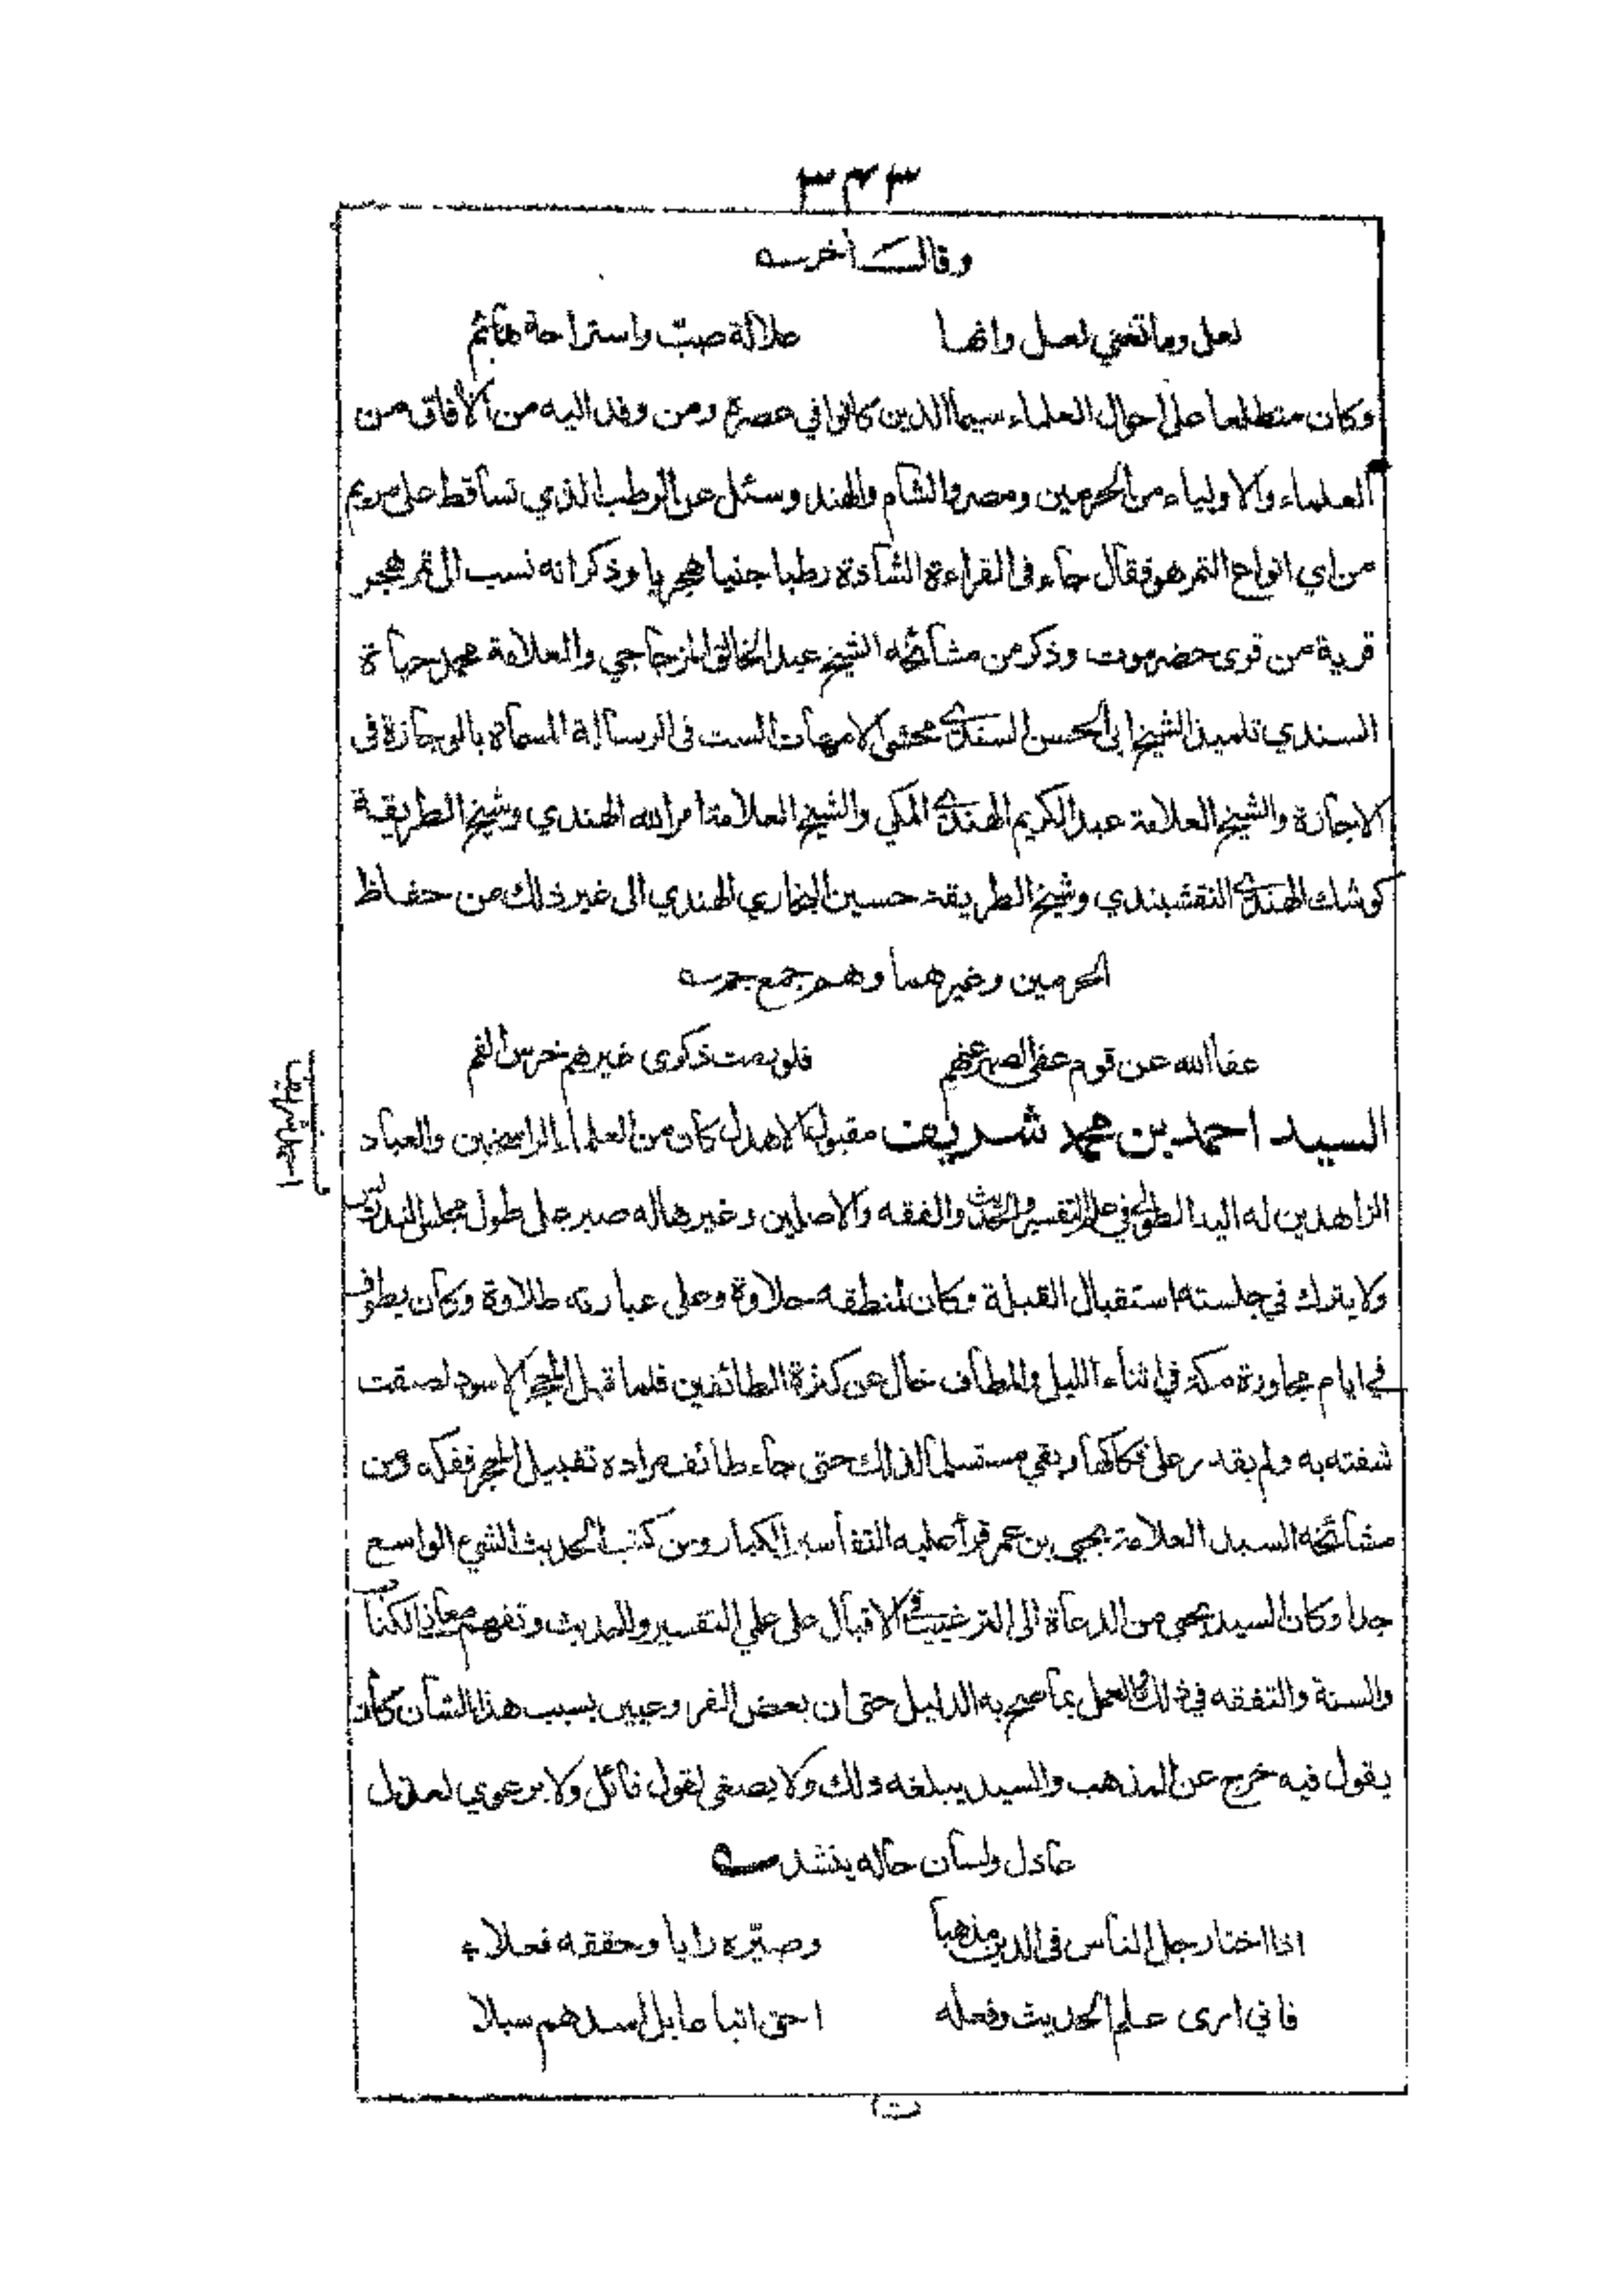 ٣٤٣
وقال آخر
لعل وما تغني لعل وانها علالة صبّ واستراحة هائم
وكان متطلعا على احوال العلماء سيما الذين كانوا في عصره ومن وفد اليه من الآفاق من
العلماء والاولياء من الحرمين ومصر والشام والهند وسئل عن الرطب الذي تساقط على مريم
من اي انواع التمر هو فقال جاء في القراءة الشاذة رطبا جنيا هجريا وذكر انه نسب الى تمر هجر
قرية من قرى حضرموت وذكر من مشائخه الشيخ عبد الخالق المزجاجي والعلامة محمد حياة
السندي تلميذ الشيخ ابي الحسن السندي محشي الامهات الست في الرسالة المسماة بالوجازة في
الاجازة والشيخ العلامة عبد الكريم الهندي المكي والشيخ العلامة امر الله الهندي وشيخ الطريقة
كوشك الهندي النقشبندي وشيخ الطريقة حسين البخاري الهندي الى غير ذلك من حفاظ
الحرمين وغيرهما وهم جمع جم
عفا الله عن قوم عفى الصبر عنهم فلو رمت ذكرى غيرهم خرس الفم
السيد احمد بن محمد شريف مقبول الاهدل كان من العلماء الراسخين والعباد
احمد شريف
الزاهدين له اليد الطولى في علم التفسير والحديث والفقه والاصلين وغيرها له صبر على طول مجلس التدريس
ولا يترك في جلسته استقبال القبلة وكان لمنطقه حلاوة وعلى عبارته طلاوة وكان يطوف
في ايام مجاورة مكة في اثناء الليل والمطاف خال عن كثرة الطائفين فلما قبل الحجر الاسود لصقت
شفته به ولم يقدر على فكاكها وبقي مستسلما لذلك حتى جاء طائف مراده تقبيل الحجر ففكه ومن
مشائخه السيد العلامة يحيى بن عمر قرأ عليه التفاسير الكبار ومن كتب الحديث الشيء الواسع
جدا وكان السيد يحيى من الدعاة الى الترغيب في الاقبال على علمي التفسير والحديث وتفهم معاني الكتاب
والسنة والتفقه في ذلك والعمل بما صح به الدليل حتى ان بعض الفروعيين بسبب هذا الشأن كان
يقول فيه خرج عن المذهب والسيد يبلغه ذلك ولا يصغى لقول قائل ولا يرعوي لعذل
عاذل ولسان حاله ينشد
اذا اختار جل الناس في الدين مذهبا وصيّره رايا وحققه فعلا
فاني ارى علم الحديث وفعله احق اتباعا بل اسدهم سبلا